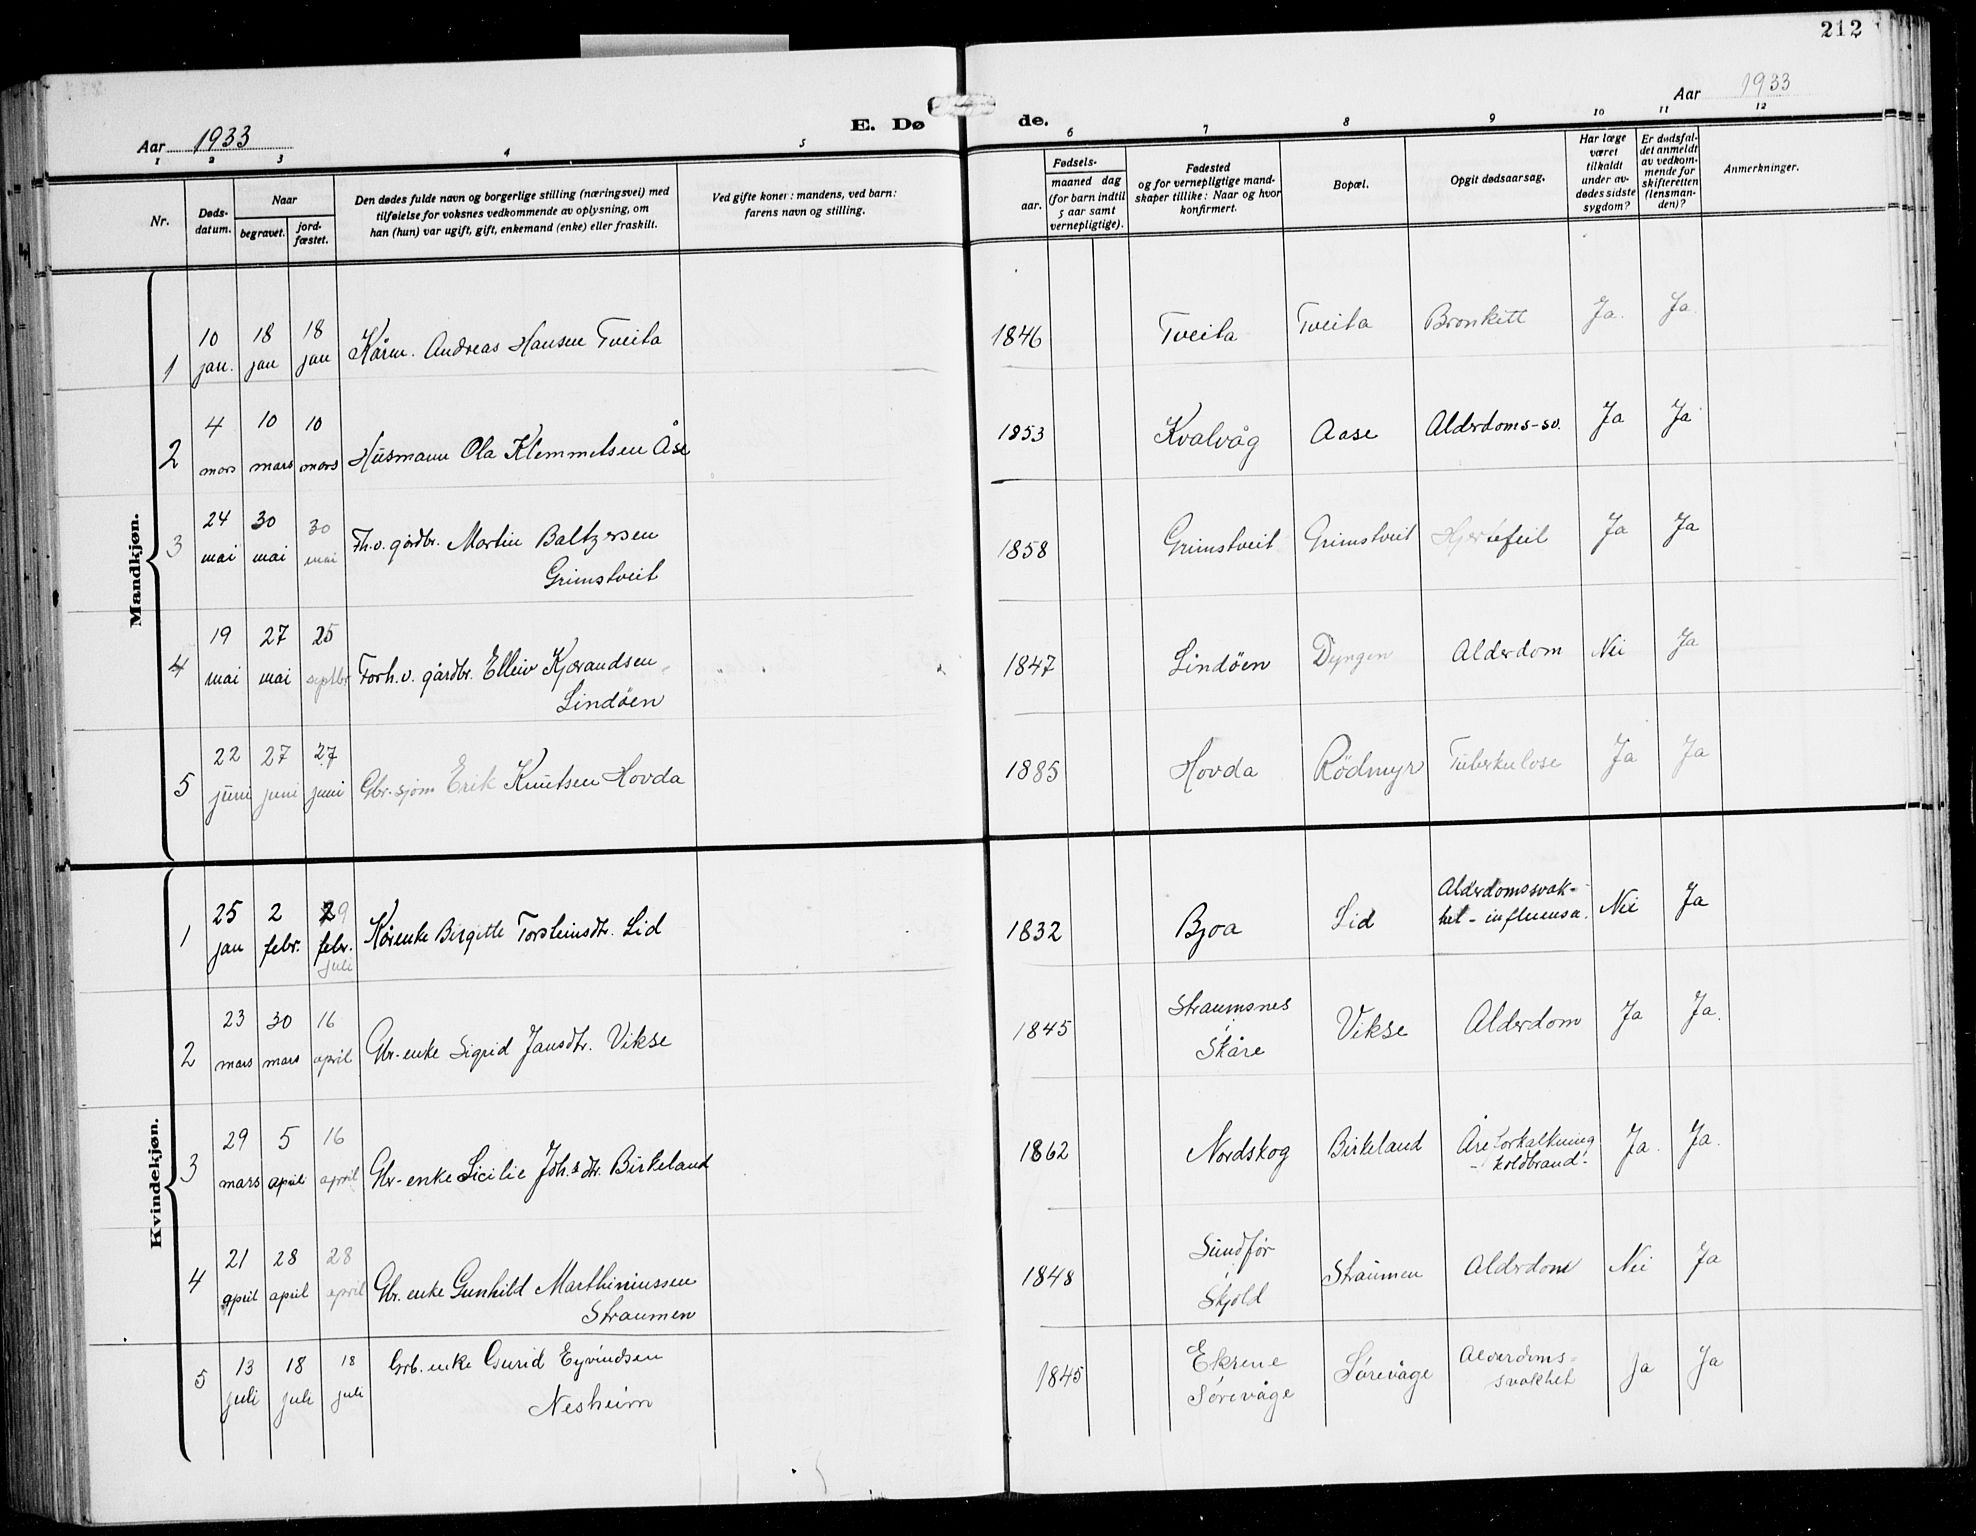 212
Aar 1933
E. Dø de.
Aar 1933
1 2 3 4 5 6 7 8 9 10 11 12
Nr.
Døds-
datum.
Naar
begravet.
jord-
fæstet.
Den dødes fulde navn og borgerlige stilling (næringsvei) med
tilføielse for voksnes vedkommende av oplysning, om
han (hun) var ugift, gift, enkemand (enke) eller fraskilt.
Ved gifte koner: mandens, ved barn:
farens navn og stilling.
Fødsels-
aar.
maaned dag
(for barn indtil
5 aar samt
vernepligtige).
Fødested
og for vernepligtige mand-
skaper tillike: Naar og hvor
konfirmert.
Bopæl.
Opgit dødsaarsag.
Har læge
været
tilkaldt
under av-
dødes sidste
sygdom?
Er dødsfal-
det anmeldt
av vedkom-
mende for
skifteretten
(lensman-
den)?
Anmerkninger.
Mandkjøn.
1 10 jan. 18 jan 18 jan Kårm. Andreas Hansen Tveita 1846 Tveita Tveita Bronkitt Ja. Ja.
2 4 mars 10 mars 10 mars Husmann Ola Klemmetsen Åse 1853 Kvalvåg Aase Alderdoms-sv. Ja Ja
3 24 mai 30 mai 30 mai Fh.v. gårdbr. Martin Baltzersen
Grimstveit 1858 Grimstveit Grimstveit Hjertefeil Ja Ja
4 19 mai 27 mai 25 septbr Forh.v. gårdbr. Elleiv Kjørandsen
Lindøen 1847 Lindøen Dyngen Alderdom Nei Ja
5 22 juni 27 juni 27 juni Gbr. sjøm Erik Knutsen Hovda 1885 Hovda Rödmyr Tuberkulose Ja Ja
Kvindekjøn.
1 25 jan 2 febr. 29 febr. juli Kårenke Birgitte Torsteinsdtr. Lid 1832 Bjoa Lid Alderdomssvak-
het - influensa. Nei Ja
2 23 mars 30 mars 16 april Gbr-enke Sigrid Jansdtr. Vikse 1845 Straumsnes
Skåre Vikse Alderdom Ja Ja.
3 29 mars 5 april 16 april Gbr-enke Sicilie Joh.sdtr. Birkeland 1862 Nordskog Birkeland Åreforkalkning
- koldbrand. Ja. Ja.
4 21 april 28 april 28 april Gbr. enke Gunhild Marthiniussen
Straumen 1848 Sundfør
Skjold Straumen Alderdom Nei Ja
5 13 juli 18 juli 18 juli Grb. enke Gurid Eyvindsen
Nesheim 1845 Ekrene
Sørevåge Sørevåge Alderdoms-
svakhet Ja Ja